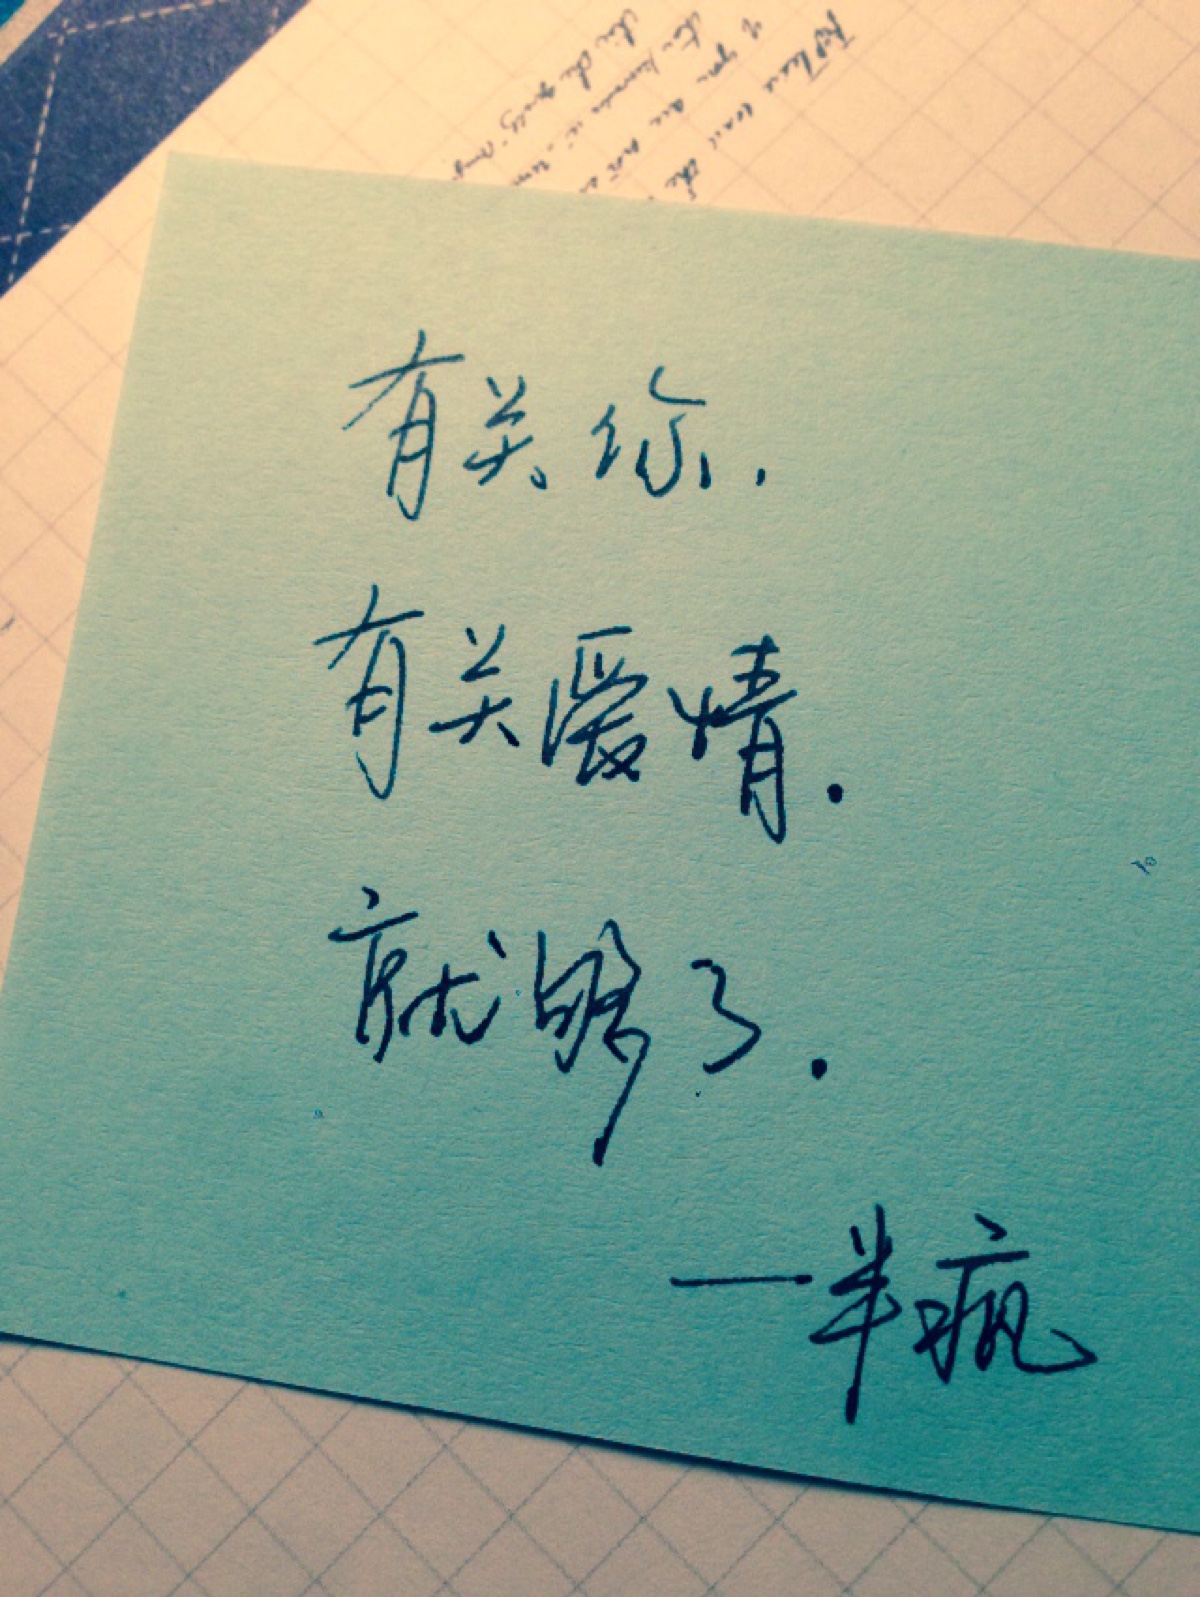 有关你.
有关爱情.
就够了.
—半疯